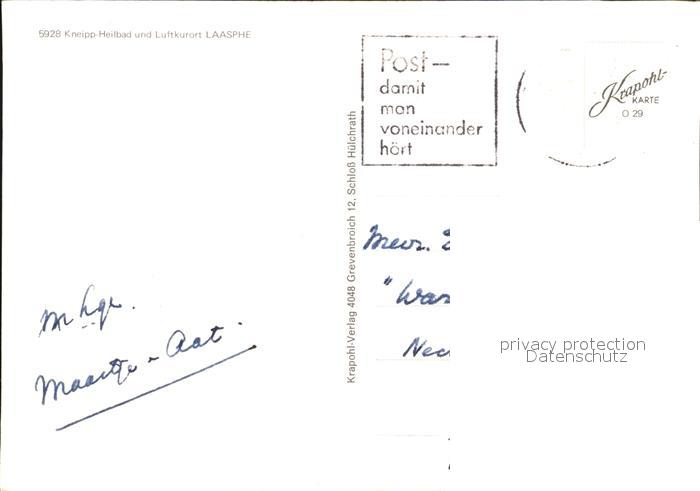 5928 Kneipp-Heilbad und Luftkurort LAASPHE
Post—
damit
man
voneinander
hört
Krapohl-
KARTE
O 29
Krapohl-Verlag 4048 Grevenbroich 12, Schloß Hülchrath
Mevr.
"War
Nec
m hgr.
Maartje - Aat.
privacy protection
Datenschutz